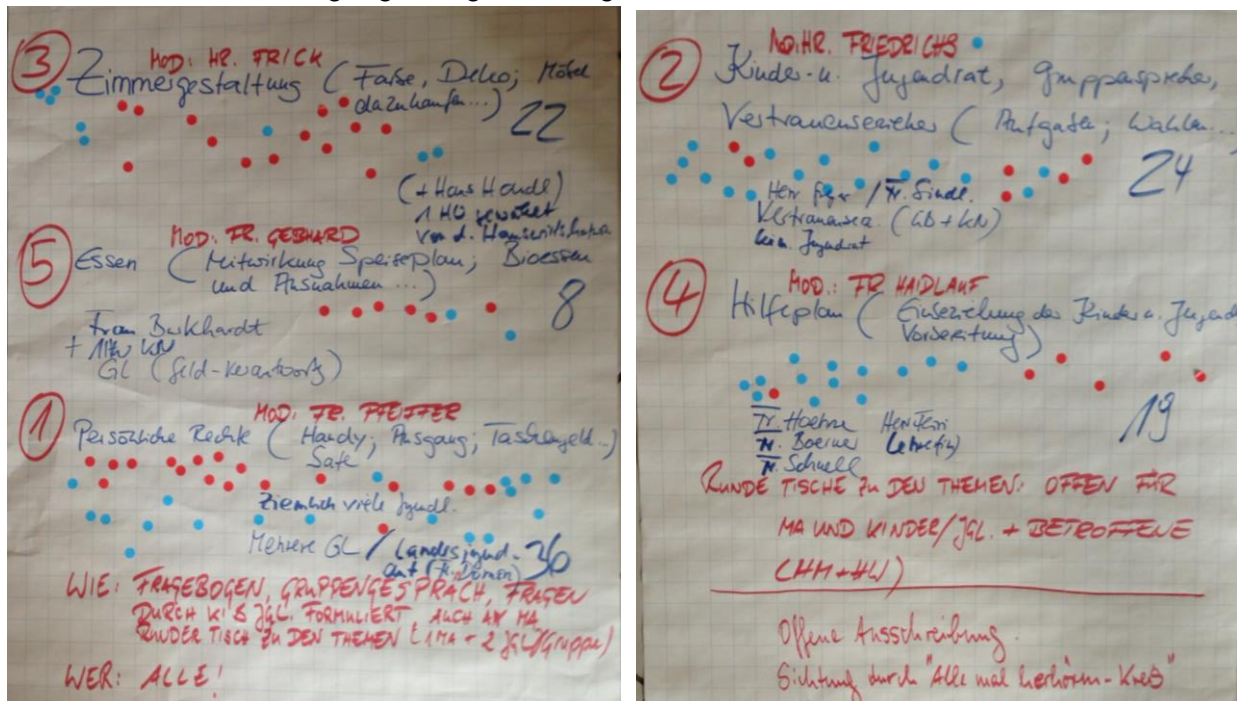 ③ MOD: HR. FRICK
Zimmergestaltung (Farbe, Deko; Möbel
dazukaufen...)
22
(+ Haus Handl)
1 HÜ gewählt
von d.
⑤ MOD: FR. GEBHARD
Essen (Mitwirkung Speiseplan; Bioessen
und Ausnahmen ...)
8
Frau Burkhardt
+ KN
GL (Geld-Verantwortg)
① MOD: FR. PFEIFFER
Persönliche Rechte (Handy; Ausgang; Taschengeld...)
Safe
Ziemlich viele Jgndl.
Mehrere GL / Landesjugend-
amt (Fr. )
36
WIE: FRAGEBOGEN, GRUPPENGESPRÄCH, FRAGEN
DURCH KI & JGL. FORMULIERT, AUCH AN MA
RUNDER TISCH ZU DEN THEMEN (1 MA + 2 JGL/Gruppe)
WER: ALLE!
② MOD: HR. FRIEDRICHS
Kinder- u. Jugendrat, Gruppensprecher,
Vertrauenserzieher (Aufgaben; Wahlen...
24
Herr / Fr.
Vertrauenserz. (GB + KN)
Jugendrat
④ MOD.: FR HAIDLAUF
Hilfeplan (Einbeziehung der Kinder u. Jugend
Vorbereitung)
19
Fr. Herr
Fr. Boerner
Fr. Schnell
RUNDE TISCHE ZU DEN THEMEN: OFFEN FÜR
MA UND KINDER/JGL. + BETROFFENE
(HM+HW)
Offene Ausschreibung.
Sichtung durch "Alle mal herhören-Kreis"